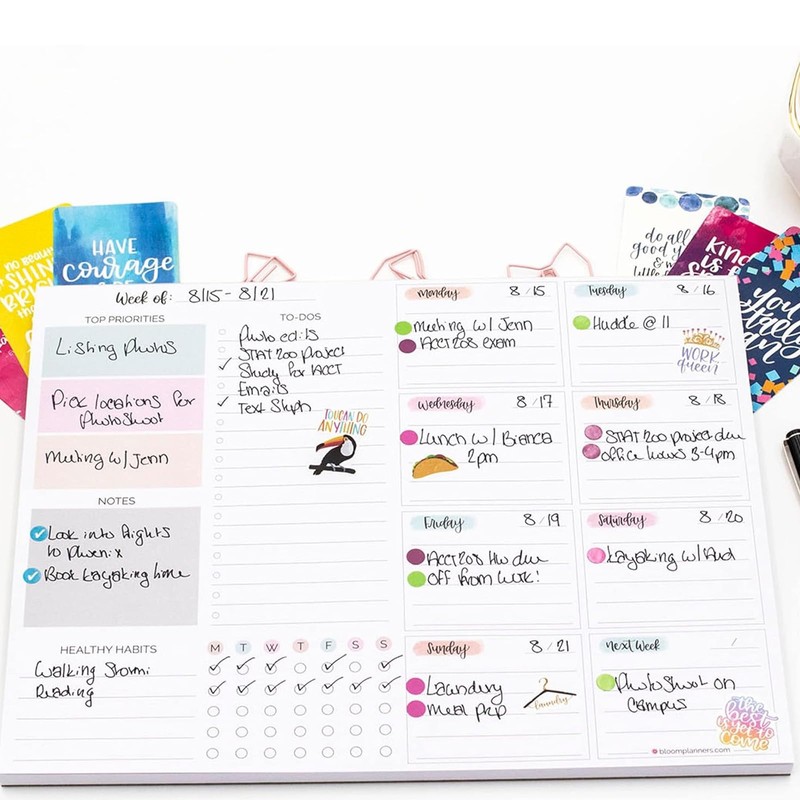 no
SHIN
BRIG
HAVE
courage
do all
good y
&
Kin
is
YOU
Week of: 8/15 - 8/21
TOP PRIORITIES
Listing Photos
Pick locations for
Photoshoot
Meeting w/ Jenn
NOTES
Look into flights
to Phoenix
Book kayaking time
TO-DOS
Photo edits
STAT 200 Project
Study for ACCT
Emails
Text Steph
TOUCAN DO
ANYTHING
HEALTHY HABITS
M T W T F S S
Walking Stormi
Reading
Monday 8/15
Meeting w/ Jenn
ACCT 208 exam
Tuesday 8/16
Huddle @ 11
WORK
queen
Wednesday 8/17
Lunch w/ Bianca
2pm
Thursday 8/18
STAT 200 project due
office hours 3-4pm
Friday 8/19
ACCT 208 HW due
OFF from work!
Saturday 8/20
Kayaking w/
Sunday 8/21
Laundry
Meal prep
laundry
next week /
Photoshoot on
Campus
the
best
is yet to
come
bloomplanners.com